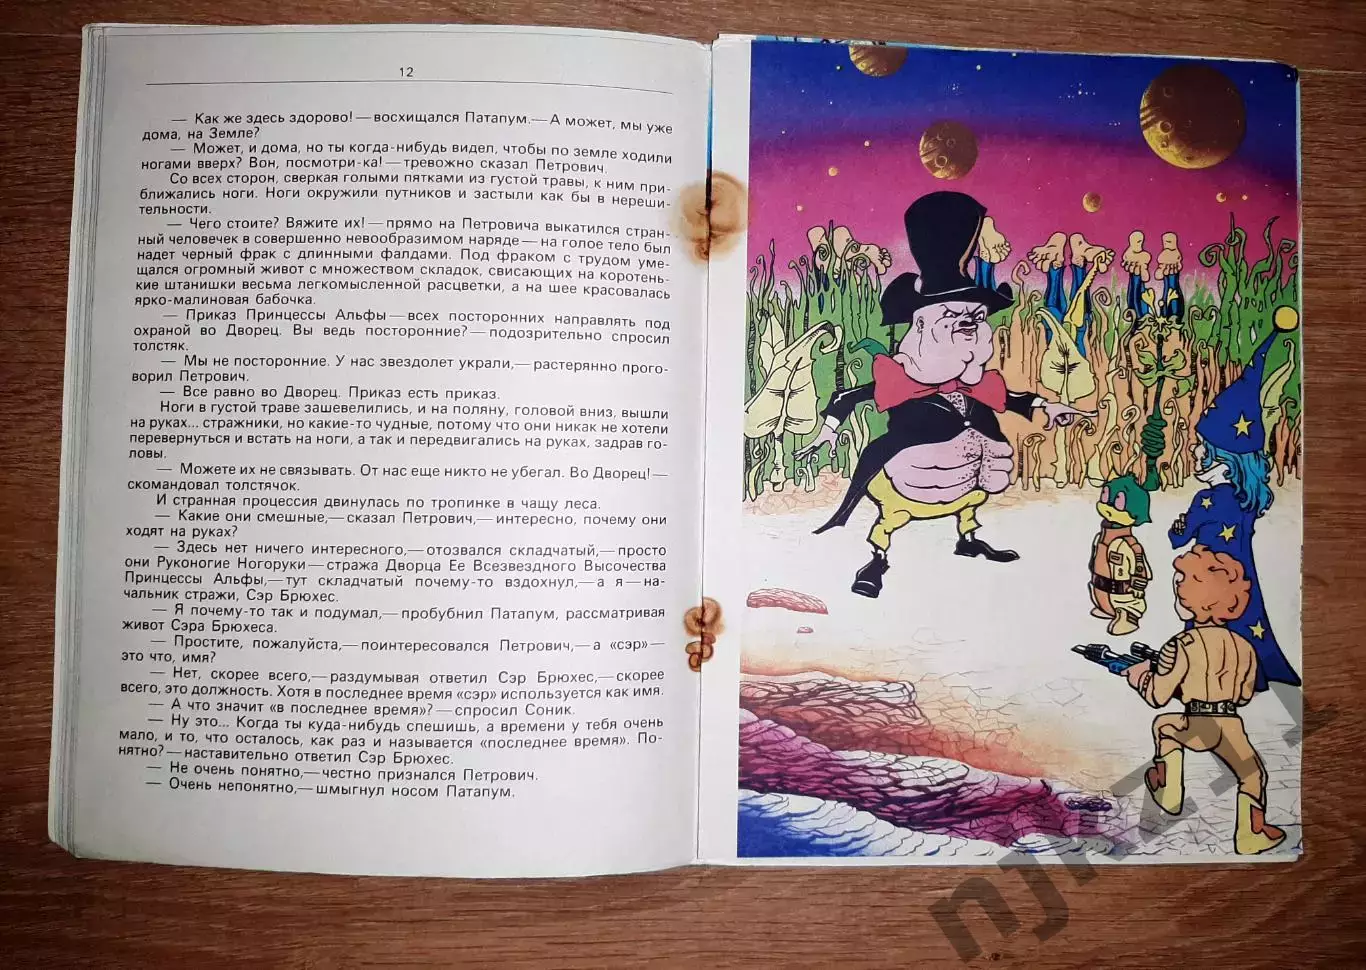 12
— Как же здесь здорово!—восхищался Патапум.—А может, мы уже
дома, на Земле?
— Может, и дома, но ты когда-нибудь видел, чтобы по земле ходили
ногами вверх? Вон, посмотри-ка!—тревожно сказал Петрович.
Со всех сторон, сверкая голыми пятками из густой травы, к ним при-
ближались ноги. Ноги окружили путников и застыли как бы в нереши-
тельности.
— Чего стоите? Вяжите их!—прямо на Петровича выкатился стран-
ный человечек в совершенно невообразимом наряде—на голое тело был
надет черный фрак с длинными фалдами. Под фраком с трудом уме-
щался огромный живот с множеством складок, свисающих на коротень-
кие штанишки весьма легкомысленной расцветки, а на шее красовалась
ярко-малиновая бабочка.
— Приказ Принцессы Альфы—всех посторонних направлять под
охраной во Дворец. Вы ведь посторонние?—подозрительно спросил
толстяк.
— Мы не посторонние. У нас звездолет украли,—растерянно прого-
ворил Петрович.
— Все равно во Дворец. Приказ есть приказ.
Ноги в густой траве зашевелились, и на поляну, головой вниз, вышли
на руках... стражники, но какие-то чудные, потому что они никак не хотели
перевернуться и встать на ноги, а так и передвигались на руках, задрав го-
ловы.
— Можете их не связывать. От нас еще никто не убегал. Во Дворец!—
скомандовал толстячок.
И странная процессия двинулась по тропинке в чащу леса.
— Какие они смешные,—сказал Петрович,—интересно, почему они
ходят на руках?
— Здесь нет ничего интересного,—отозвался складчатый,—просто
они Руконогие Ногоруки—стража Дворца Ее Всезвездного Высочества
Принцессы Альфы,—тут складчатый почему-то вздохнул,—а я—на-
чальник стражи, Сэр Брюхес.
— Я почему-то так и подумал,—пробубнил Патапум, рассматривая
живот Сэра Брюхеса.
— Простите, пожалуйста,—поинтересовался Петрович,—а «сэр»—
это что, имя?
— Нет, скорее всего,—раздумывая ответил Сэр Брюхес,—скорее
всего, это должность. Хотя в последнее время «сэр» используется как имя.
— А что значит «в последнее время»?—спросил Соник.
— Ну это... Когда ты куда-нибудь спешишь, а времени у тебя очень
мало, и то, что осталось, как раз и называется «последнее время». По-
нятно?—наставительно ответил Сэр Брюхес.
— Не очень понятно,—честно признался Петрович.
— Очень непонятно,—шмыгнул носом Патапум.